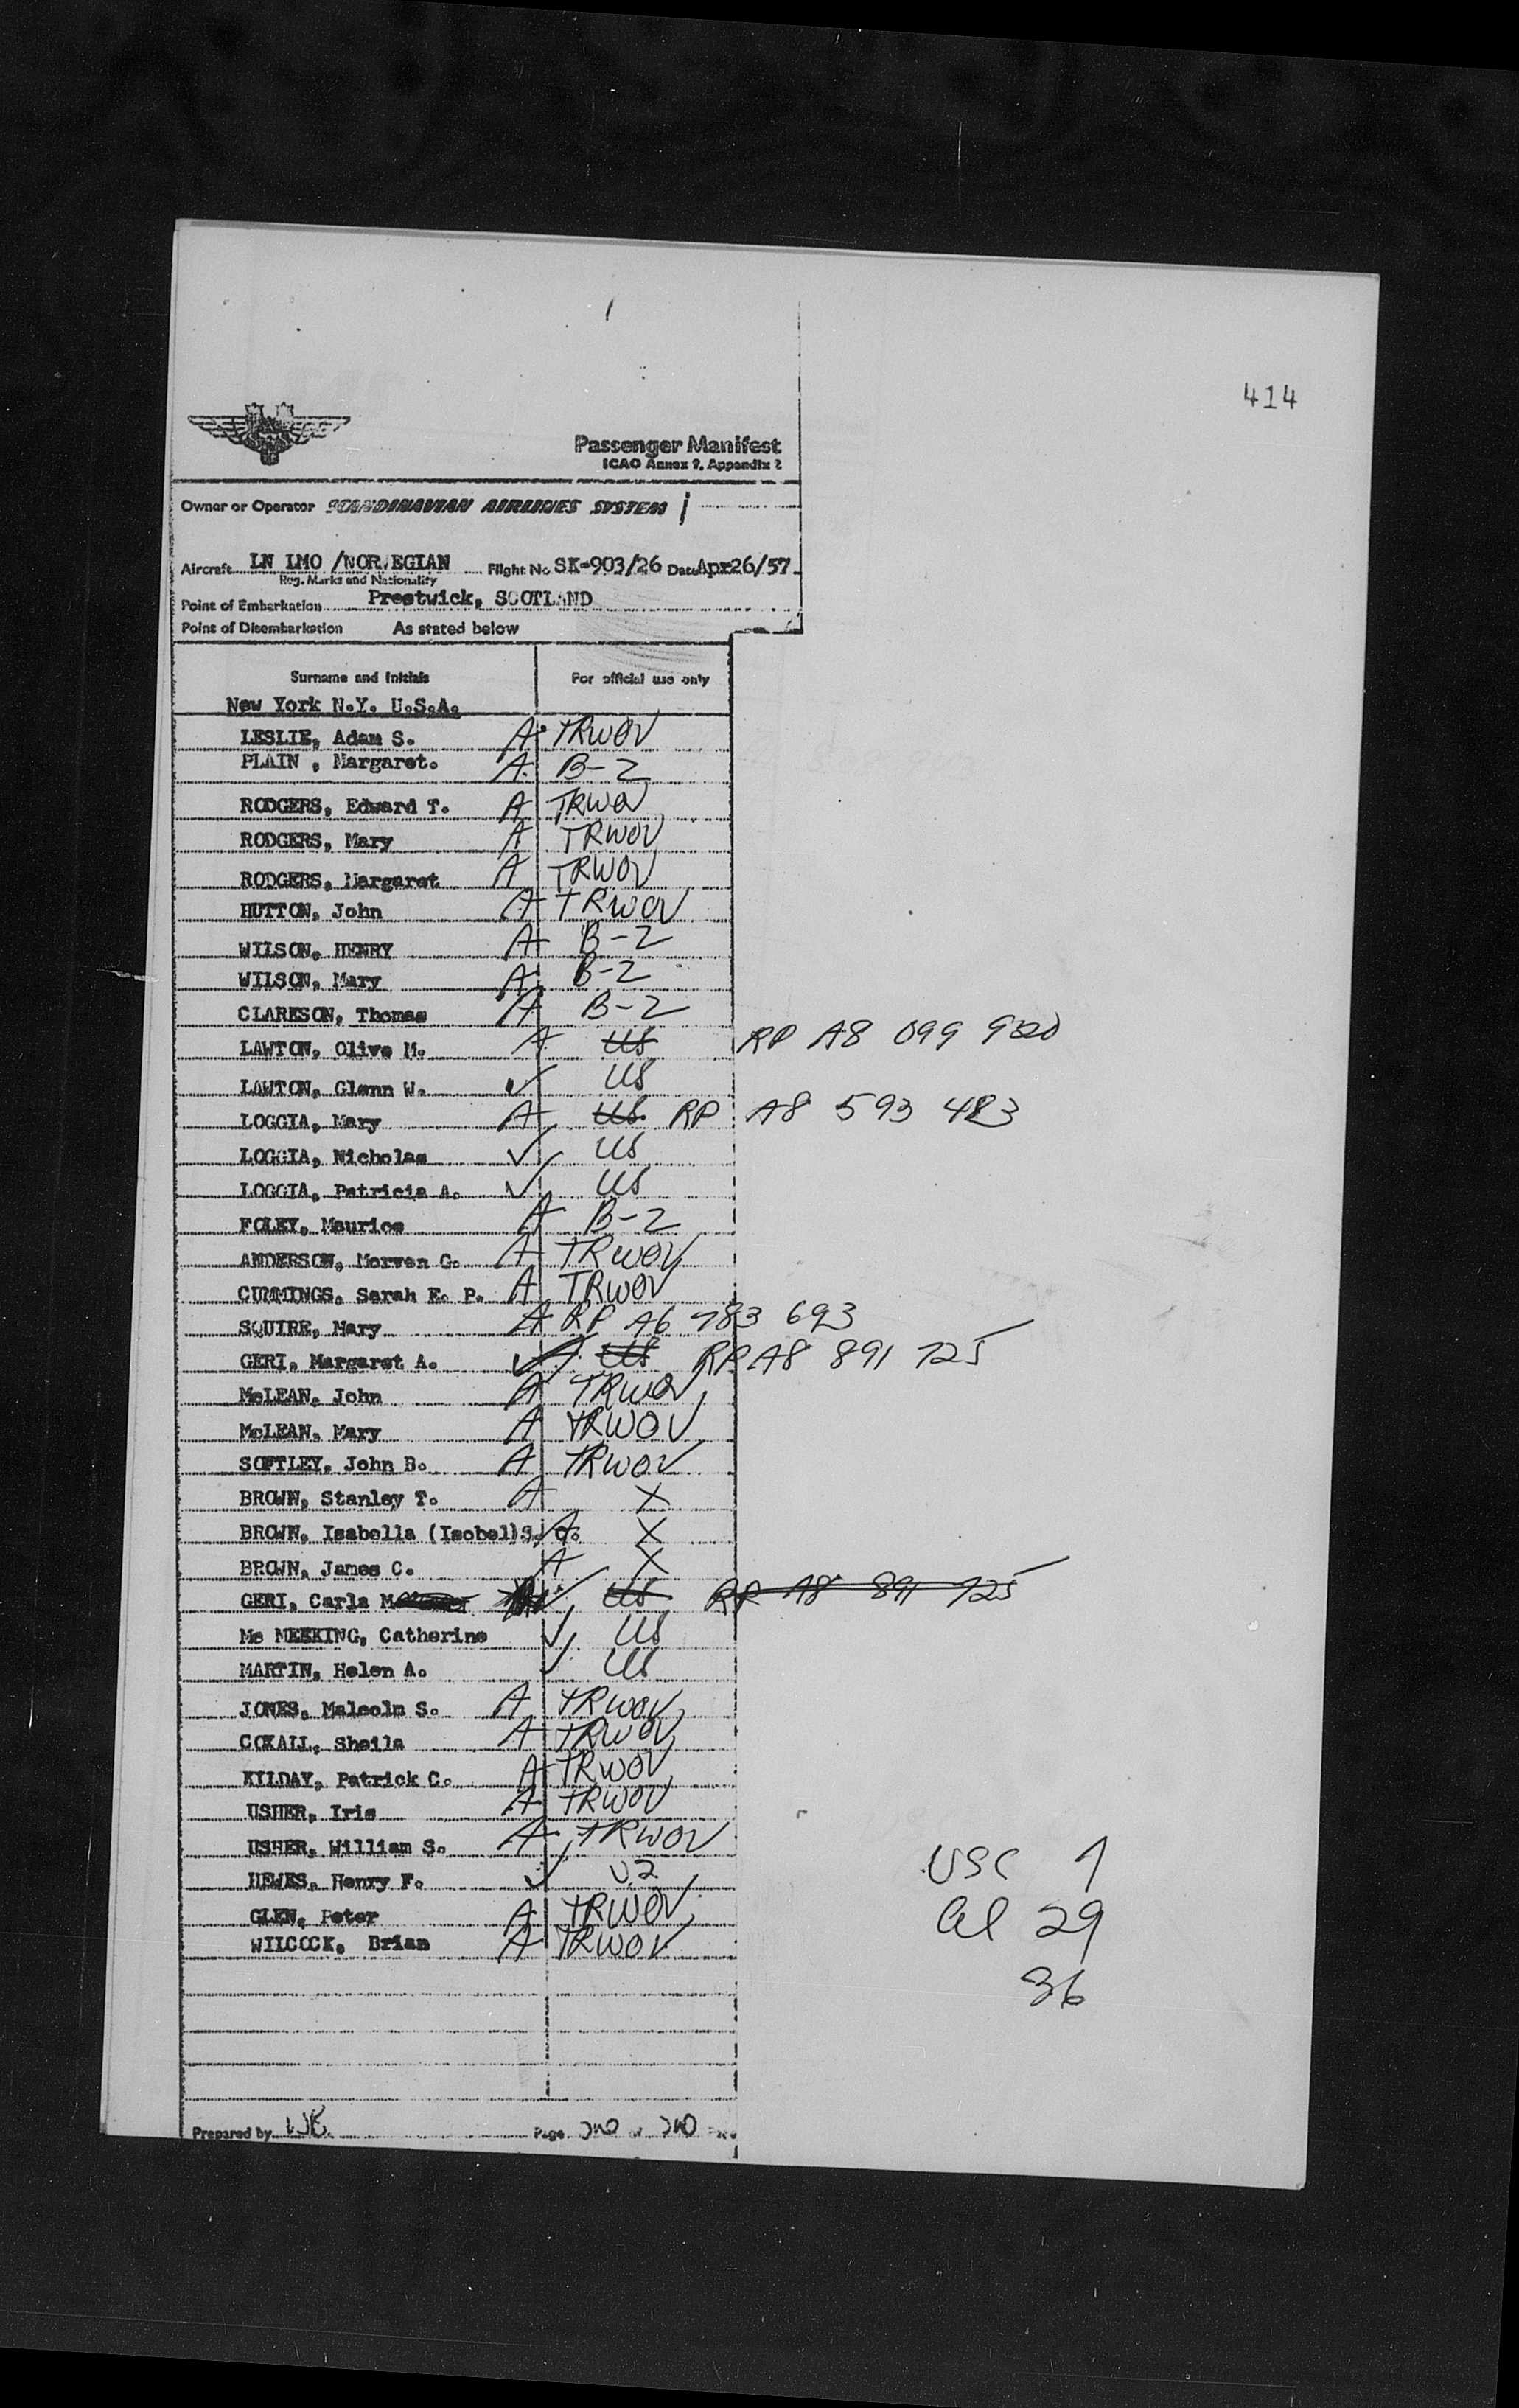 414
Passenger Manifest
ICAO Annex 9, Appendix 2
Owner or Operator SCANDINAVIAN AIRLINES SYSTEM
Aircraft LN LMO /NORWEGIAN Flight No SK-903/26 Date Apr26/57
Reg. Marks and Nationality
Point of Embarkation Prestwick, SCOTLAND
Point of Disembarkation As stated below
Surname and Initials For official use only
New York N.Y. U.S.A.
LESLIE, Adam S. A TRWOV
PLAIN , Margaret. A B-2
RODGERS, Edward T. A TRWOV
RODGERS, Mary A TRWOV
RODGERS, Margaret A TRWOV
HUTTON, John A TRWOV
WILSON, HENRY A B-2
WILSON, Mary A B-2
CLARKSON, Thomas A B-2
LAWTON, Olive M. A US RP A8 099 920
LAWTON, Glenn W. ✓ US
LOGGIA, Mary A US RP A8 593 483
LOGGIA, Nicholas ✓ US
LOGGIA, Patricia A. ✓ US
FOLEY, Maurice A B-2
ANDERSON, Morven G. A TRWOV
CUMMINGS, Sarah E. P. A TRWOV
SQUIRE, Mary A RP A6 783 693
GERI, Margaret A. ✓ A US RP A8 891 725
McLEAN, John A TRWOV
McLEAN, Mary A TRWOV
SOFTLEY, John B. A TRWOV
BROWN, Stanley T. A X
BROWN, Isabella (Isobel)S. C. A X
BROWN, James C. A X
GERI, Carla M ✓ US RP A8 891 725
Mc MEEKING, Catherine ✓ US
MARTIN, Helen A. ✓ US
JONES, Malcolm S. A TRWOV
COKALL, Sheila A TRWOV
KILDAY, Patrick C. A TRWOV
USHER, Iris A TRWOV
USHER, William S. A TRWOV
HEWES, Henry F. ✓
GLEN, Peter A TRWOV
WILCOCK, Brian A TRWOV
USC 7
al 29
36
Prepared by Page two of two